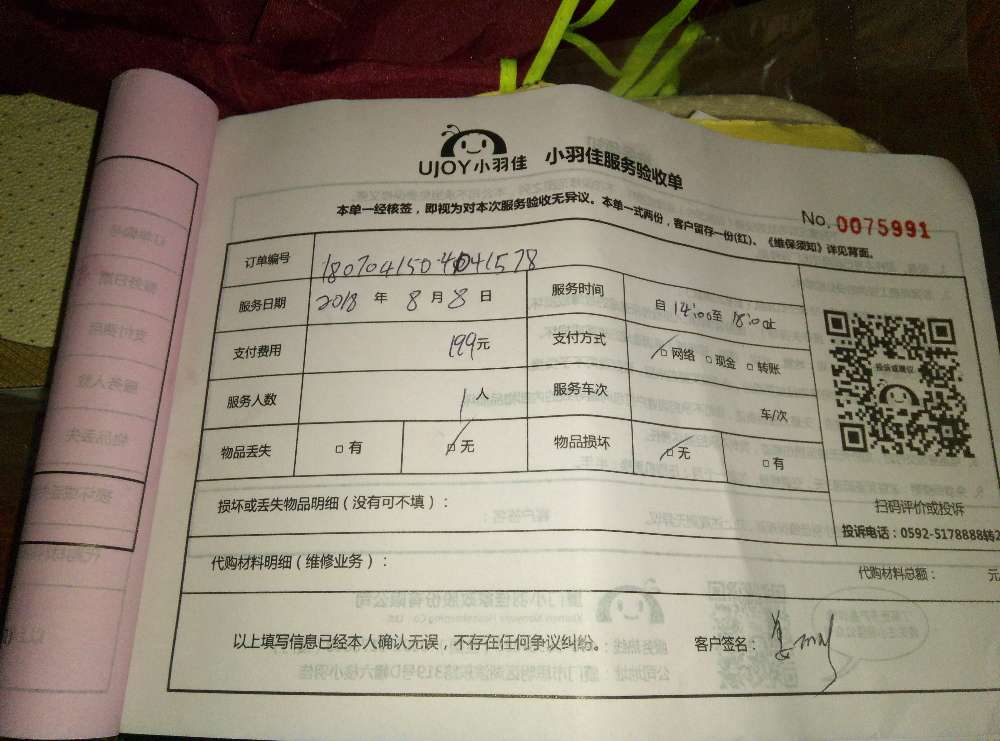 UJOY小羽佳 小羽佳服务验收单
本单一经核签，即视为对本次服务验收无异议。本单一式两份，客户留存一份(红)。《维保须知》详见背面。
No. 0075991
订单编号
服务日期 2018 年 8 月 8 日 服务时间 自 14:00至 18:00止
支付费用 199元 支付方式 □网络 □现金 □转账
服务人数 1人 服务车次 车/次
物品丢失 □有 □无 物品损坏 □无 □有
投诉或建议
扫码评价或投诉
投诉电话：0592-5178888转2
损坏或丢失物品明细（没有可不填）：
代购材料明细（维修业务）： 代购材料总额： 元
以上填写信息已经本人确认无误，不存在任何争议纠纷。 客户签名：